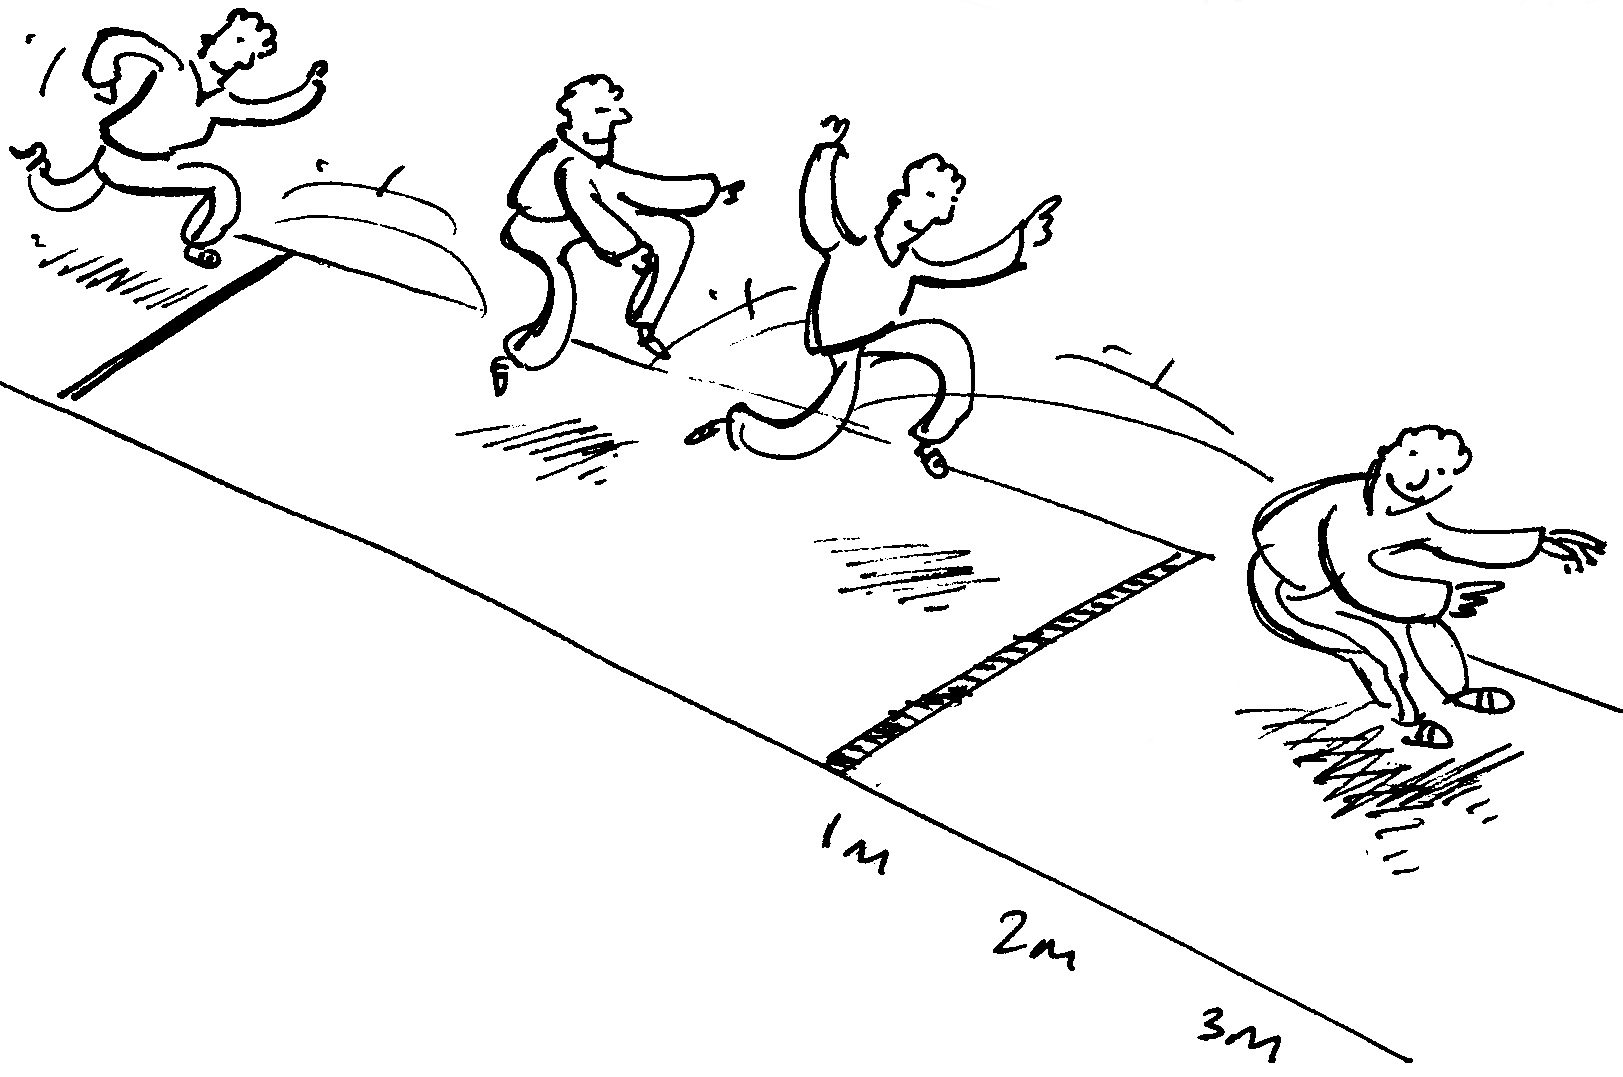 1m
2m
3m